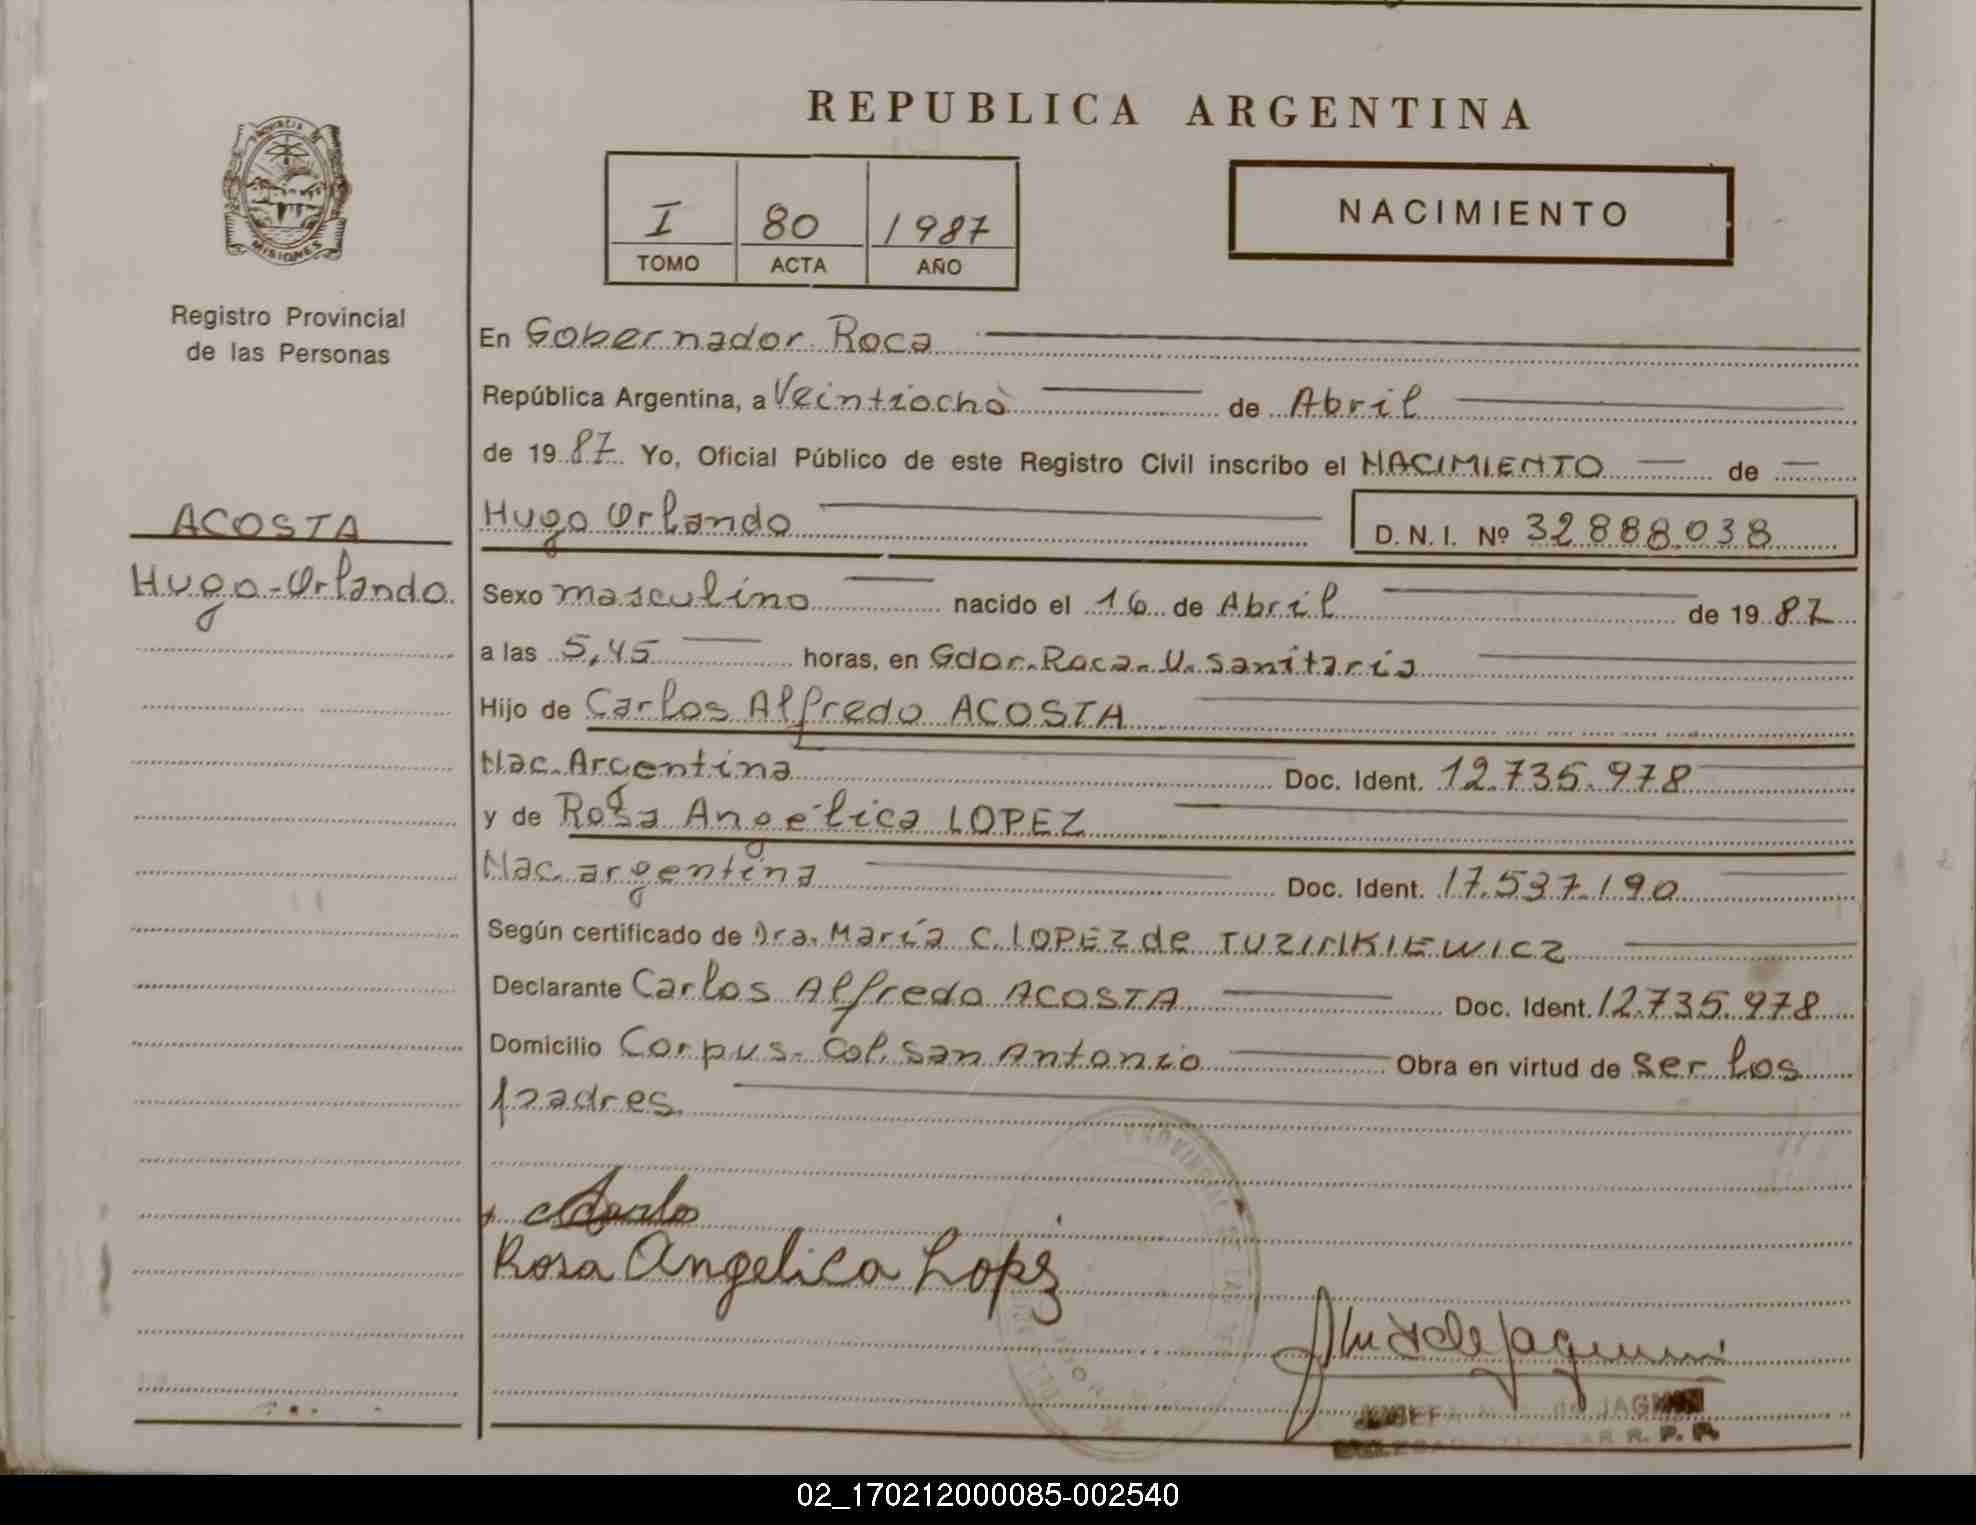 REPUBLICA ARGENTINA
PROVINCIA DE
MISIONES
Registro Provincial
de las Personas
I 80 1987
TOMO ACTA AÑO
NACIMIENTO
ACOSTA
Hugo-Orlando
En Gobernador Roca
República Argentina, a Veintiocho de Abril
de 1987 Yo, Oficial Público de este Registro Civil inscribo el NACIMIENTO de
Hugo Orlando D. N. I. Nº 32888.038
Sexo masculino nacido el 16 de Abril de 1987
a las 5,45 horas, en Gdor. Roca. U. Sanitaria
Hijo de Carlos Alfredo ACOSTA
Nac. Argentina Doc. Ident. 12.735.978
y de Rosa Angélica LOPEZ
Nac. argentina Doc. Ident. 17.537.190
Según certificado de Dra. María C. LOPEZ de TUZINKIEWICZ
Declarante Carlos Alfredo ACOSTA Doc. Ident. 12.735.978
Domicilio Corpus - Col. San Antonio Obra en virtud de ser los
padres.
Rosa Angelica Lopez
JOSEFA de JAGMIN
R. P. P.
02_170212000085-002540